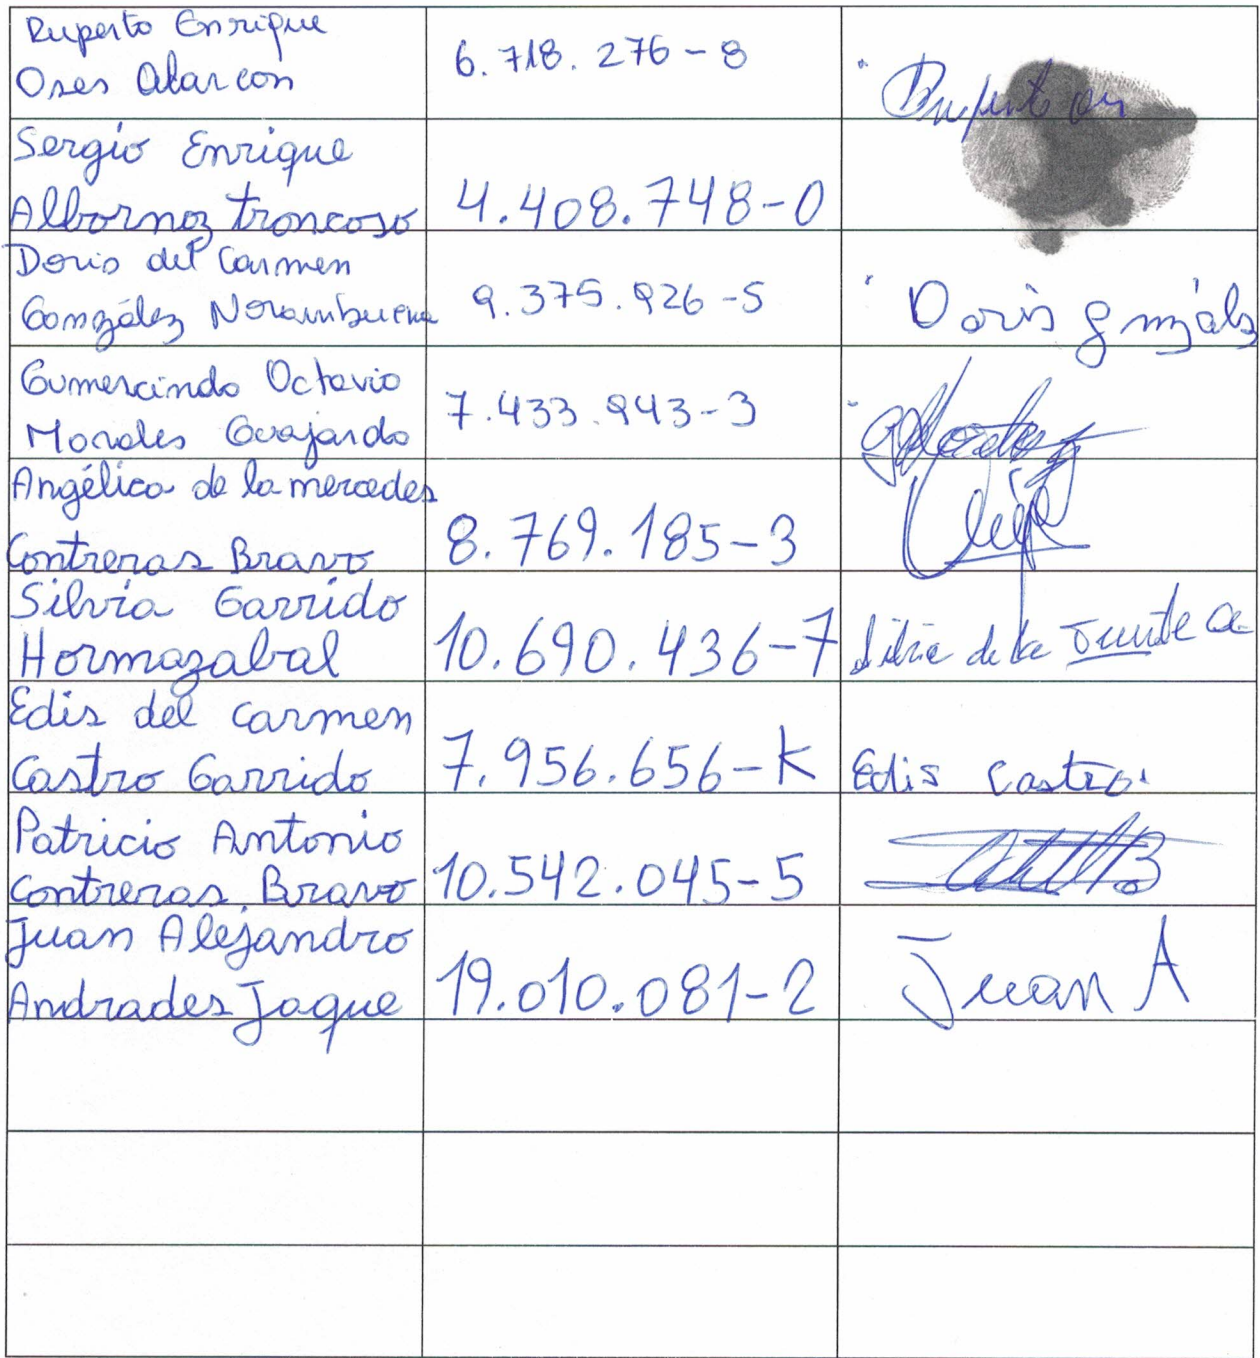 Ruperto Enrique
Oses Alarcon
6.718.276-8
Sergio Enrique
Albornoz troncoso
4.408.748-0
Doris del Carmen
González Norambuena
9.375.926-5
Doris Gonzáls
Gumercindo Octavio
Morales Guajardo
7.433.943-3
Angélica de la mercedes
Contreras Bravo
8.769.185-3
Silvia Garrido
Hormazabal
10.690.436-7
de la
Edis del Carmen
Castro Garrido
7.956.656-K
Edis Castro.
Patricio Antonio
Contreras Bravo
10.542.045-5
Juan Alejandro
Andrades Jaque
19.010.081-2
Juan A